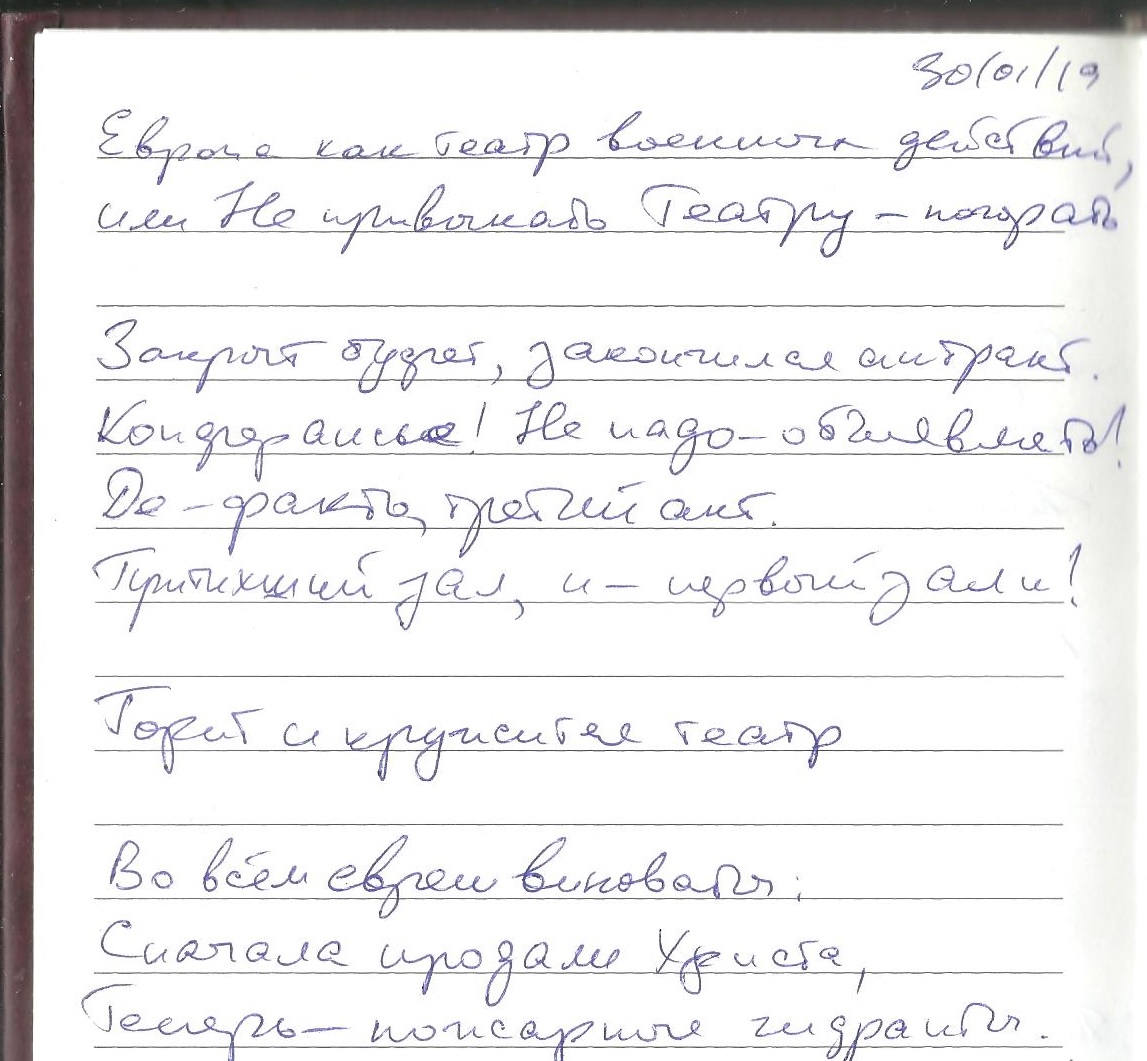 30/01/19
Европа как театр военных действий,
или Не привыкать Театру – погорать
Закрыт буфет, закончился антракт.
Конферансье! Не надо – объявлять!
Де-факто, третий акт.
Притихший зал, и – первый залп!
Горит и кружится театр
Во всём евреи виноваты:
Сначала продали Христа,
Теперь – пожарные гидранты.